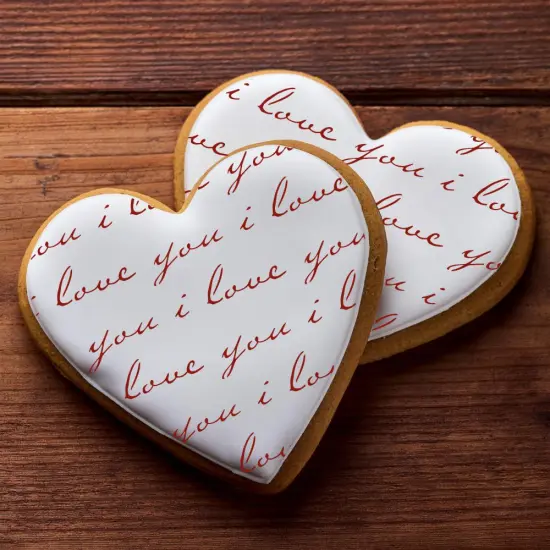 i love
you i love
you i love
love you i
you i love
you i love
love you i
you i love
you i
love you i
you i lo
love you i
you i
lov